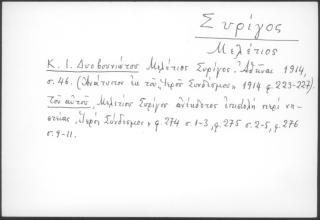 Συρίγος
Μελέτιος
Κ. Ι. Δυοβουνιώτου Μελέτιος Συρίγος. Ἀθῆναι 1914,
σ. 46. (Ἀνάτυπον ἐκ τοῦ "Ἱεροῦ Συνδέσμου" 1914 φ. 223-227).
Τοῦ αὐτοῦ, Μελετίου Συρίγου ἀνέκδοτος ἐπιστολὴ περὶ νη-
στείας, "Ἱερὸς Σύνδεσμος" φ. 274 σ. 1-3, φ. 275 σ. 2-5, φ. 276
σ. 9-11.